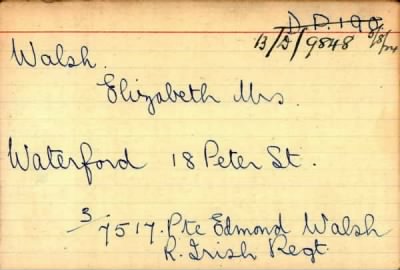 D.P. 190.
13/D/9848
Walsh.
Elizabeth Mrs.
Waterford 18 Peter St.
3/7517. Pte Edmond Walsh
R. Irish Regt